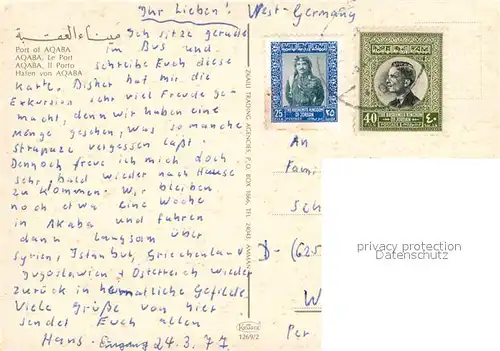 Ihr Lieben!
West-Germany
ميناء العقبة
Port of AQABA
AQABA, Le Port
AQABA, Il Porto
Hafen von AQABA
Ich sitze gerade
im Bus und
schreibe Euch diese
Karte. Bisher hat mir die
Exkursion sehr viel Freude ge-
macht, denn wir haben eine
Menge gesehen, was so manche
Strapaze vergessen läßt.
Dennoch freue ich mich doch
sehr, bald wieder nach Hause
zu kommen. Wir bleiben
noch etwa eine Woche
in Akaba und fahren
dann langsam über
Syrien, Istanbul, Griechenland
Jugoslawien + Österreich wieder
zurück in heimatliche Gefilde.
Viele Grüße von hier
sendet Euch allen
Hans. Eingang 24.3.77
TRADING AGENCIES, P.O. BOX
KRÜGER
1269/2
25
THE HASHEMITE KINGDOM
OF JORDAN
٢٥
40
THE HASHEMITE KINGDOM
OF JORDAN
٤٠
An
Fami
Sch
D-(625
W
Per
privacy protection
watermark